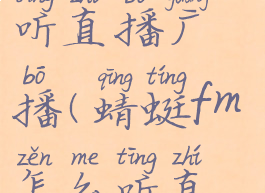 听直播广
bō qīng tíng
播(蜻蜓fm
zěn me tīng zhí
怎么听直